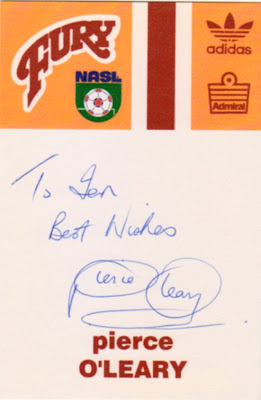 FURY
NASL
adidas
Admiral
To Jen
Best Wishes
Pierce O'Leary
pierce
O'LEARY